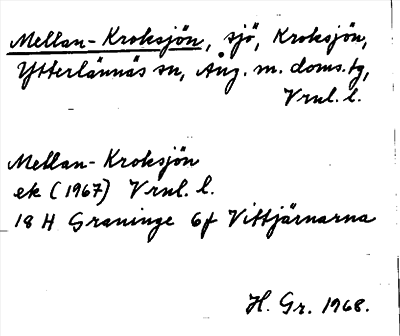 Mellan-Kroksjön, sjö, Kroksjön,
Ytterlännäs sn, Ång. m. doms.tg,
Vrnl. l.
Mellan-Kroksjön
ek (1967) Vrnl. l.
18 H Graninge 6f Vittjärnarna
H. Gr. 1968.